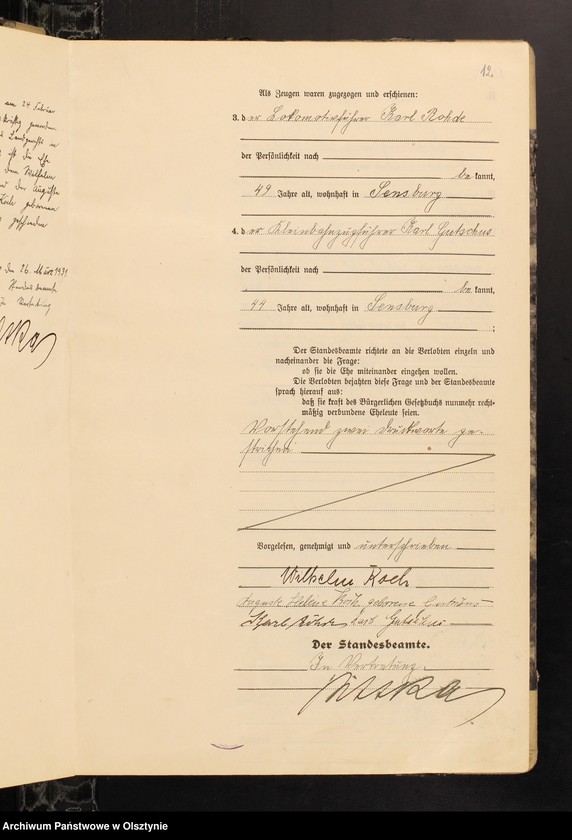 am 24 Februar
ist die Ehe
dem Wilhelm
der Auguste
Koch geborenen
geschieden
den 26. März 1931
Standesbeamte
In Vertretung
12.
Als Zeugen waren zugezogen und erschienen:
3. der Lokomotivführer Karl Rohde
der Persönlichkeit nach
be kannt,
49 Jahre alt, wohnhaft in Sensburg
4. der Kleinbahnzugführer Karl Gutschus
der Persönlichkeit nach
be kannt,
44 Jahre alt, wohnhaft in Sensburg
;
Der Standesbeamte richtete an die Verlobten einzeln und
nacheinander die Frage:
ob sie die Ehe miteinander eingehen wollen.
Die Verlobten bejahten diese Frage und der Standesbeamte
sprach hierauf aus:
daß sie kraft des Bürgerlichen Gesetzbuchs nunmehr recht-
mäßig verbundene Eheleute seien.
Vorstehend zwei Druckworte ge-
strichen
Vorgelesen, genehmigt und unterschrieben
Wilhelm Koch
Auguste Helene Koch geborene
Karl Rohde Karl Gutschus
Der Standesbeamte.
In Vertretung.
Archiwum Państwowe w Olsztynie